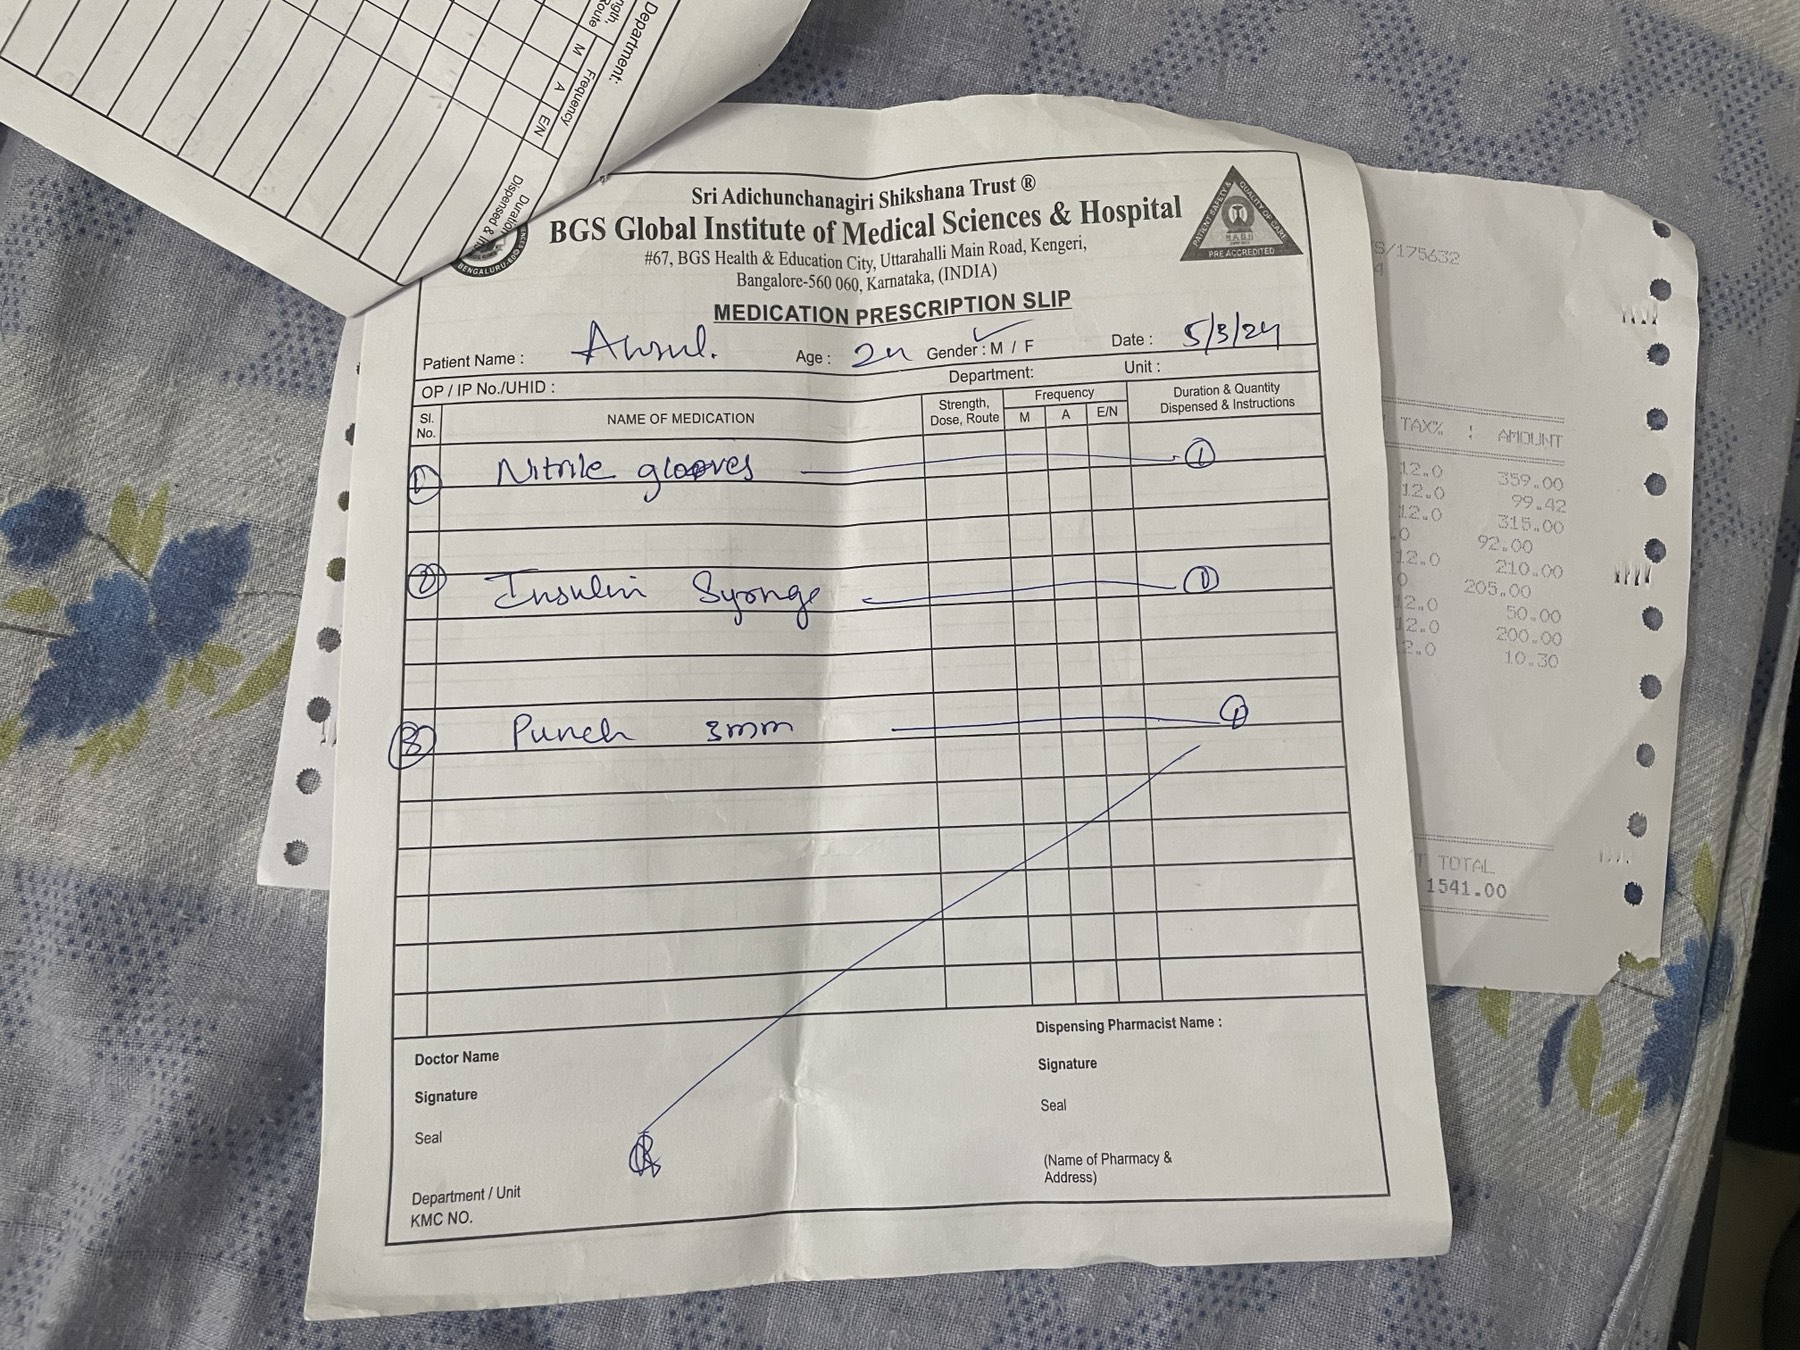 Department:
ngth,
Route
Frequency
M A E/N
Duration
Dispensed &
BENGALURU-60
Sri Adichunchanagiri Shikshana Trust ®
BGS Global Institute of Medical Sciences & Hospital
#67, BGS Health & Education City, Uttarahalli Main Road, Kengeri,
Bangalore-560 060, Karnataka, (INDIA)
PATIENT SAFETY & QUALITY OF CARE
PRE ACCREDITED
MEDICATION PRESCRIPTION SLIP
Patient Name : Age : 24 Gender : M / F Date : 5/3/24
OP / IP No./UHID : Department: Unit :
Sl. No. NAME OF MEDICATION Strength, Dose, Route Frequency M A E/N Duration & Quantity Dispensed & Instructions
1 Nitrile glooves 1
2 Insulin Syringe 1
3 Punch 3mm 1
Doctor Name
Signature
Seal
Department / Unit
KMC NO.
Dispensing Pharmacist Name :
Signature
Seal
(Name of Pharmacy &
Address)
S/175632
4
TAX% : AMOUNT
12.0 359.00
12.0 99.42
12.0 315.00
.0 92.00
12.0 210.00
0 205.00
2.0 50.00
12.0 200.00
2.0 10.30
T TOTAL
1541.00